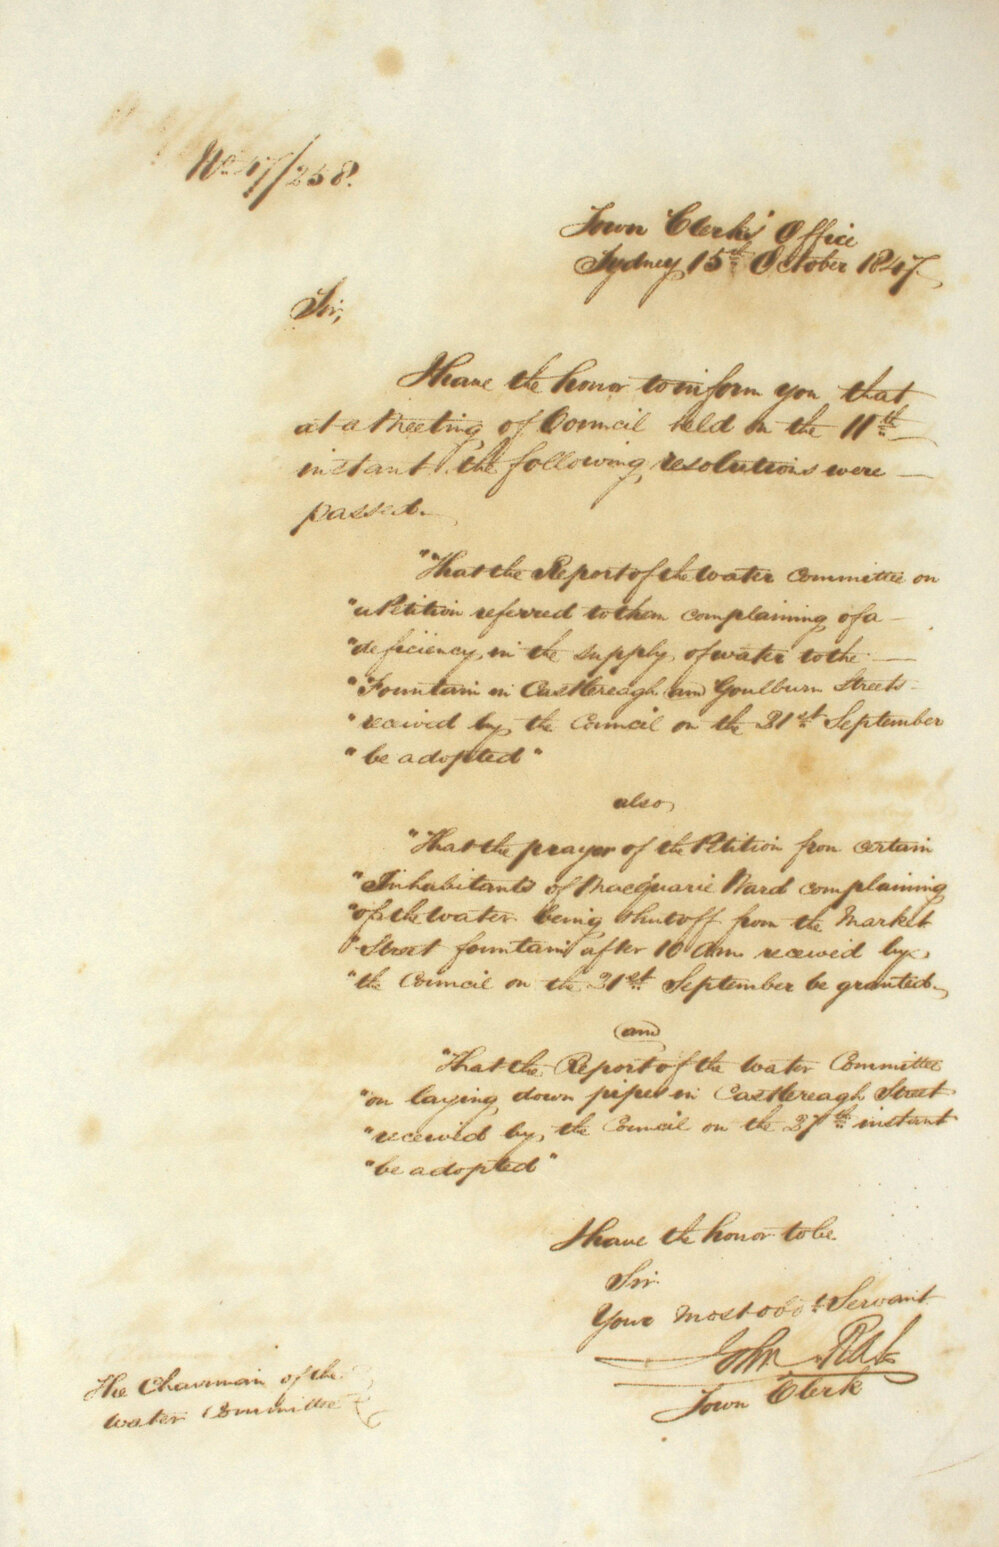 No 47/258.
Town Clerks' Office
Sydney 15th October 1847
Sir,
I have the honor to inform you that
at a Meeting of Council held on the 11th
instant the following resolutions were
passed.
"That the Report of the Water Committee on
"a Petition referred to them complaining of a
"deficiency in the supply of water to the
"Fountain in Castlereagh and Goulburn Streets
"received by the Council on the 21st September
"be adopted"
also
"That the prayer of the Petition from certain
"Inhabitants of Macquarie Ward complaining
"of the water being shut off from the Market
"Street fountain after 10 a.m. received by
"the Council on the 21st September be granted.
and
"That the Report of the Water Committee
"on laying down pipes in Castlereagh Street
"received by the Council on the 27th instant
"be adopted"
I have the honor to be
Sir
Your most obdt Servant
John
Town Clerk
The Chairman of the
Water Committee